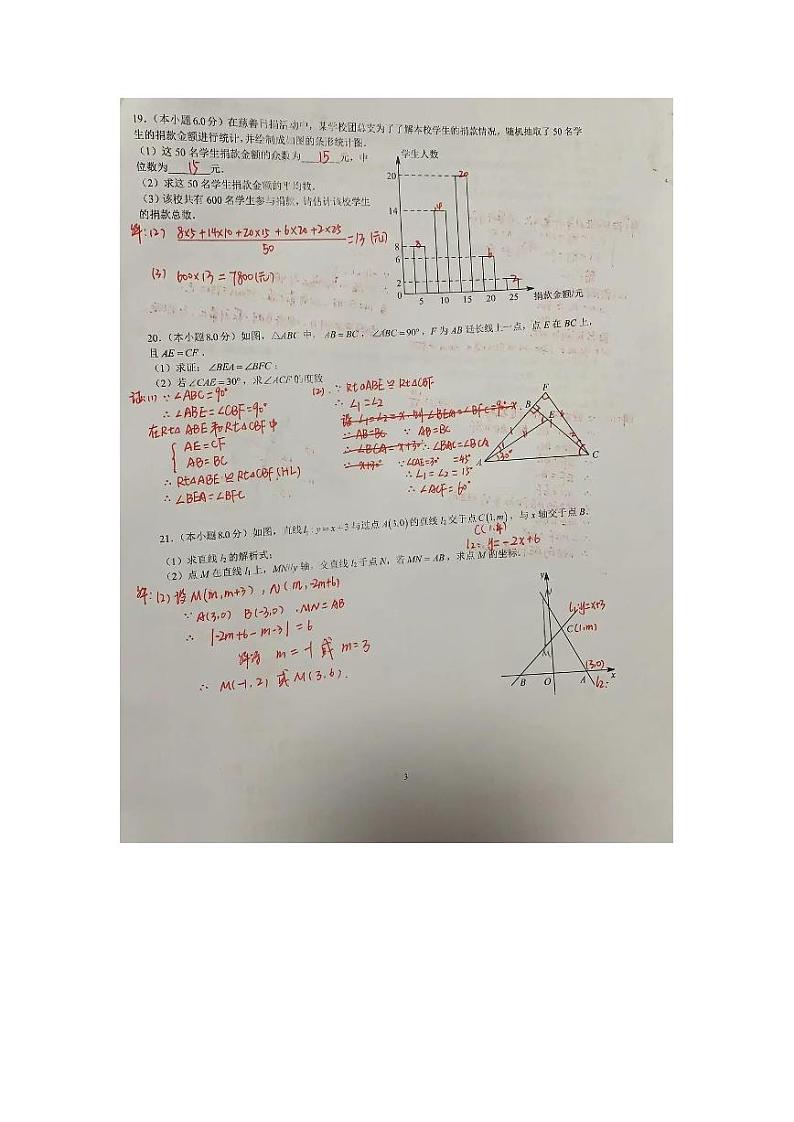 19.（本小题6.0分）在慈善月捐活动中，某学校团总支为了了解本校学生的捐款情况，随机抽取了50名学
生的捐款金额进行统计，并绘制成如图的条形统计图.
（1）这50名学生捐款金额的众数为 15 元，中
位数为 15 元.
（2）求这50名学生捐款金额的平均数.
（3）该校共有600名学生参与捐款，请估计该校学生
的捐款总数.
解:(2) 8×5+14×10+20×15+6×20+2×25
50
=13 (元)
(3) 600×13=7800(元)
学生人数
20
14
8
6
2
0
5 10 15 20 25
捐款金额/元
8
14
20
6
2
20.（本小题8.0分）如图，△ABC中，AB=BC，∠ABC=90°，F为AB延长线上一点，点E在BC上，
且AE=CF.
（1）求证：∠BEA=∠BFC；
（2）若∠CAE=30°，求∠ACF的度数
证:(1) ∵∠ABC=90°
∴∠ABE=∠CBF=90°
在Rt△ABE和Rt△CBF中
AE=CF
AB=BC
∴Rt△ABE≌Rt△CBF(HL)
∴∠BEA=∠BFC
(2). ∵Rt△ABE≌Rt△CBF
∴∠1=∠2
设∠1=∠2=x,则∠BEA=∠BFC=90°-x
∵AB=BC ∵AB=BC
∴∠BCA=x+30° ∴∠BAC=∠BCA
∴x+30° ∵∠CAE=30° =45°
∴∠1=∠2=15°
∴∠ACF=60°
F
B
E
A
C
30°
21.（本小题8.0分）如图，直线l₁:y=x+3与过点A(3,0)的直线l₂交于点C(1,m)，与x轴交于点B.
C(1,4)
（1）求直线l₂的解析式；
l2: y=-2x+6
（2）点M在直线l₁上，MN//y轴，交直线l₂于点N，若MN=AB，求点M的坐标.
解:(2)设M(m,m+3), N(m,-2m+6)
∵A(3,0) B(-3,0) .MN=AB
∴|-2m+6-m-3|=6
解得 m=-1 或 m=3
∴M(-1,2) 或M(3,6).
y
N
l₁:y=x+3
C(1,m)
M
(3,0)
B O A x
l2:
3